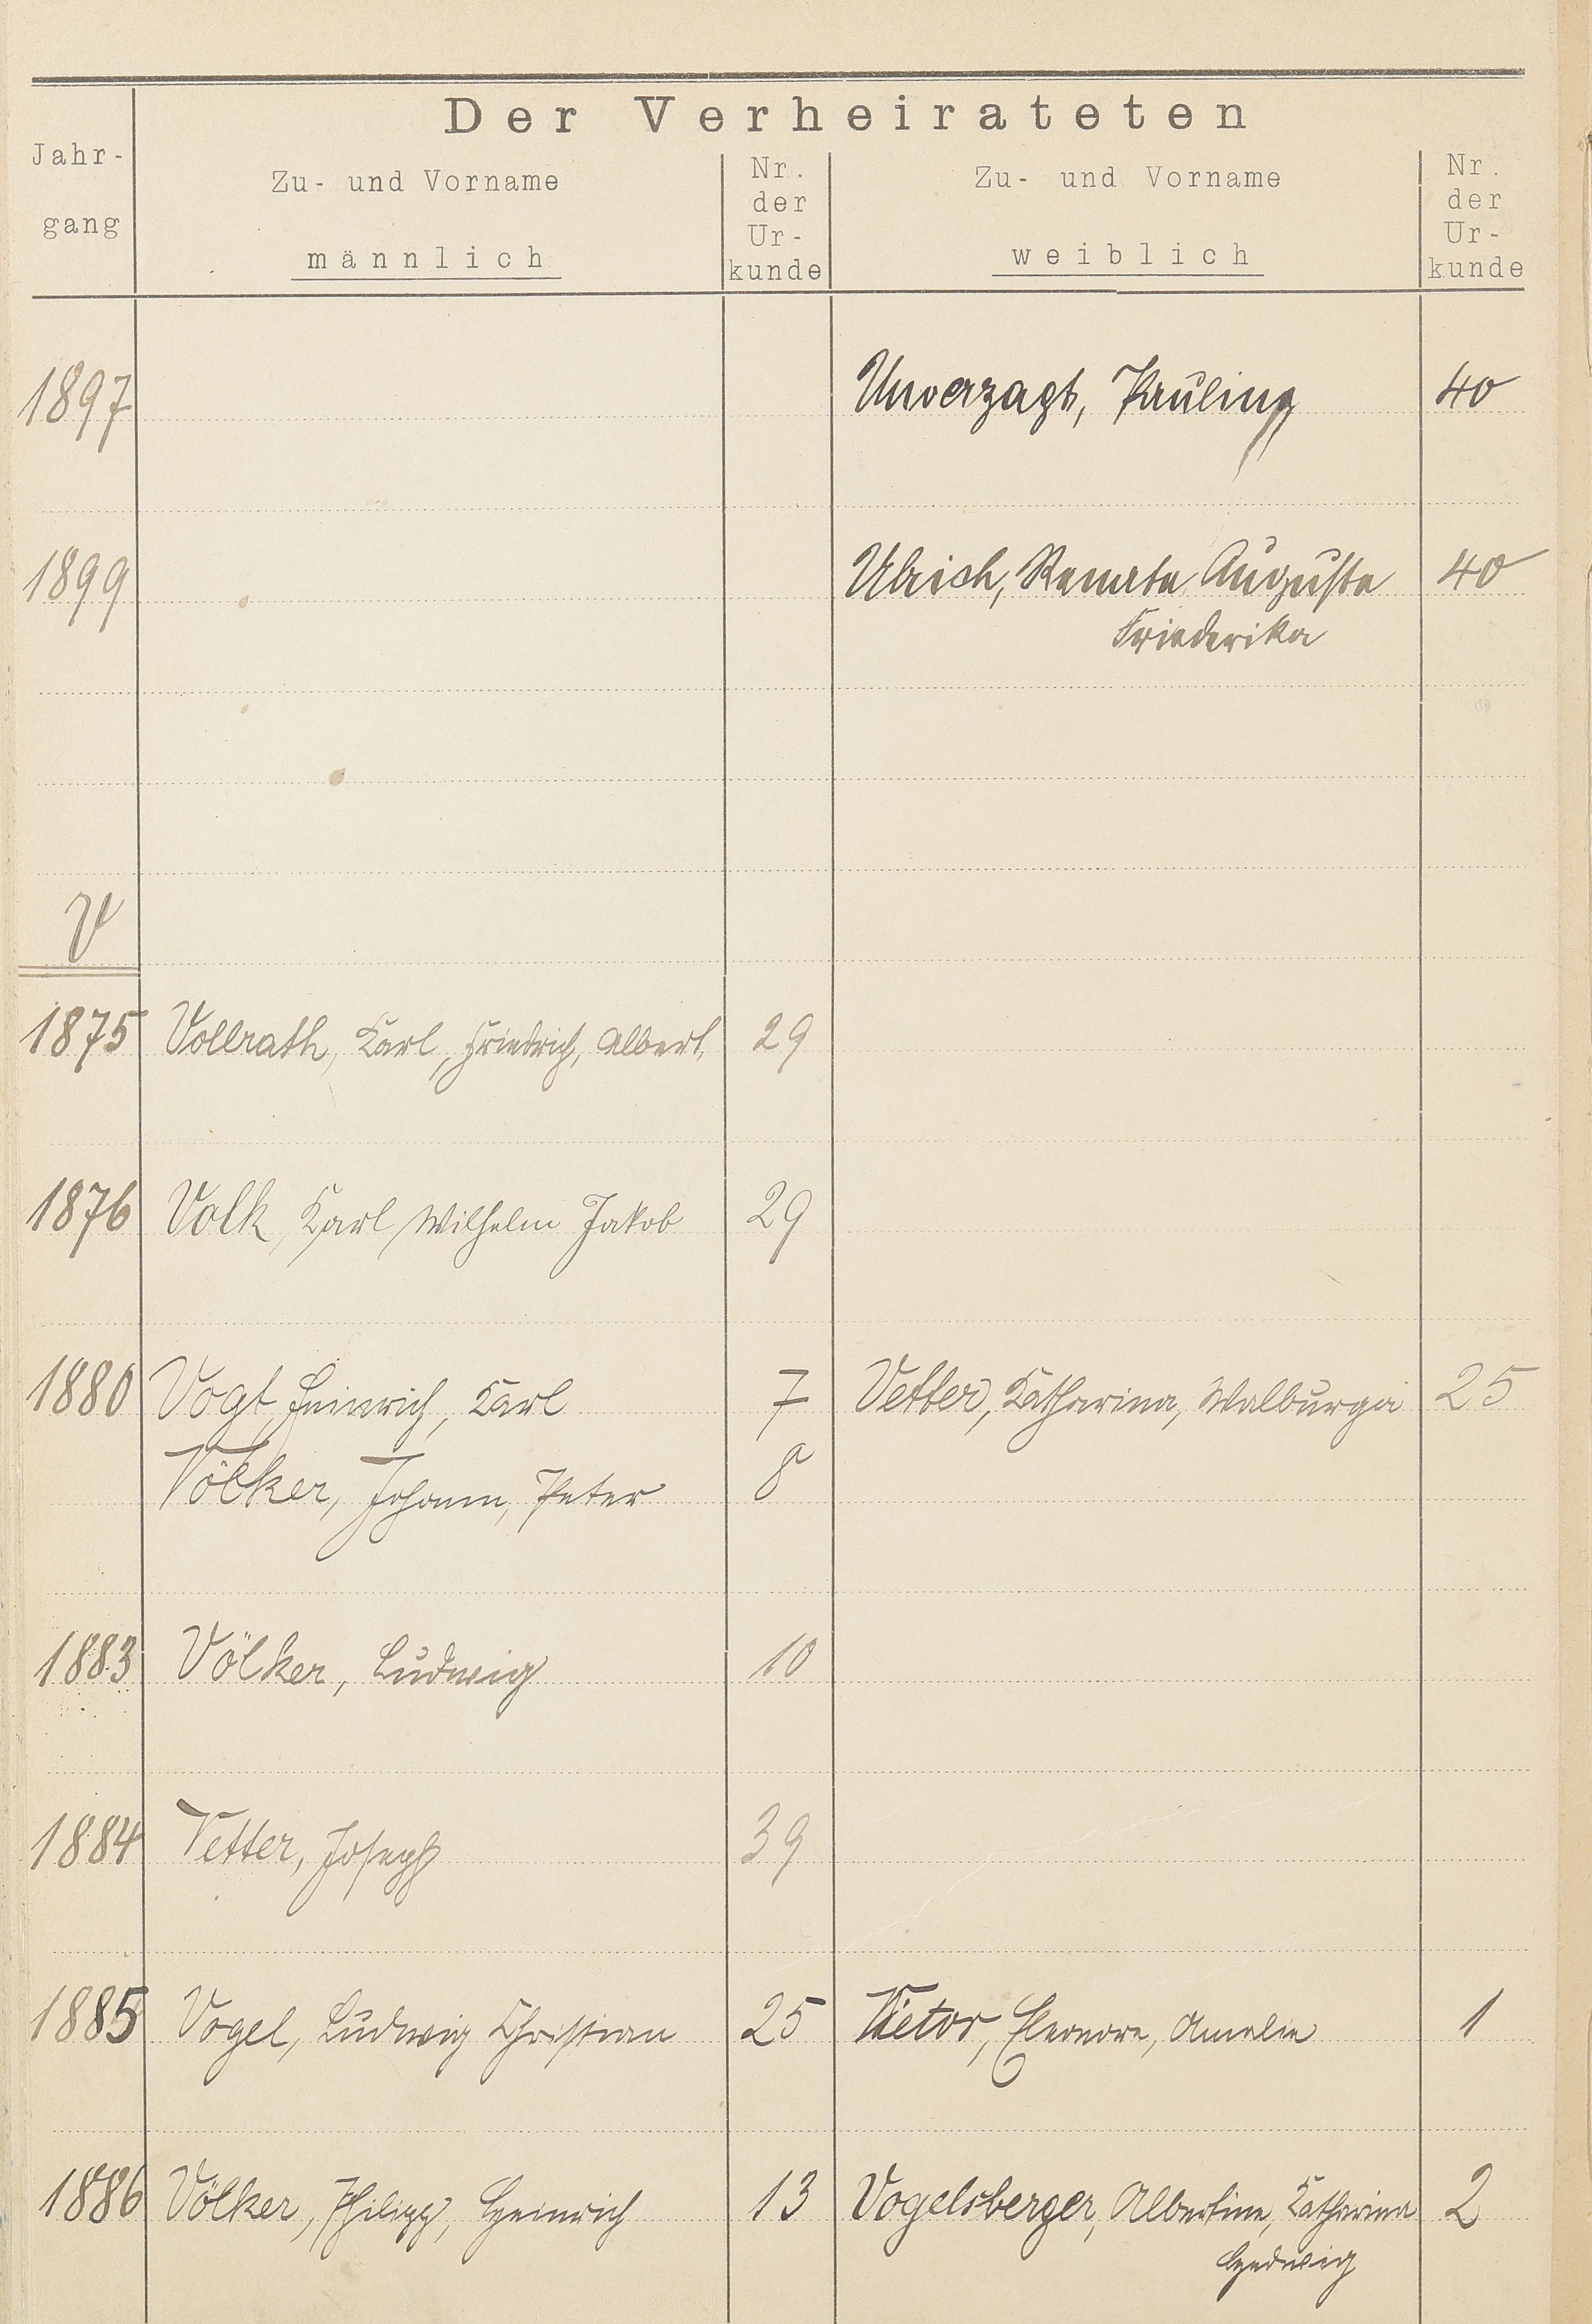 Der Verheirateten
Jahr-
gang
Zu- und Vorname
männlich
Nr.
der
Ur-
kunde
Zu- und Vorname
weiblich
Nr.
der
Ur-
kunde
1897 Unverzagt, Pauline 40
1899 Ulrich, Renate Auguste 40
Friederika
V
1875 Vollrath, Karl, Friedrich, Albert 29
1876 Volk, Karl Wilhelm Jakob 29
1880 Vogt, Heinrich, Karl 7 Vetter, Katharina, Walburga 25
Völker, Johann, Peter 8
1883 Völker, Ludwig 10
1884 Vetter, Joseph 39
1885 Vogel, Ludwig Christian 25 Vietor, Eleonore, Amalie 1
1886 Völker, Philipp, Heinrich 13 Vogelsberger, Albertine, Katharina 2
Hedwig